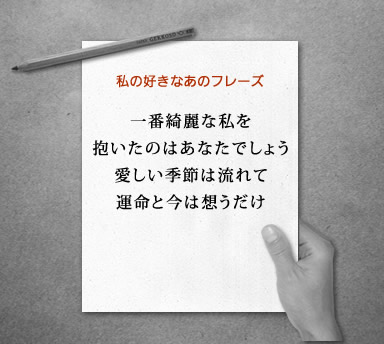 私の好きなあのフレーズ
一番綺麗な私を
抱いたのはあなたでしょう
愛しい季節は流れて
運命と今は想うだけ